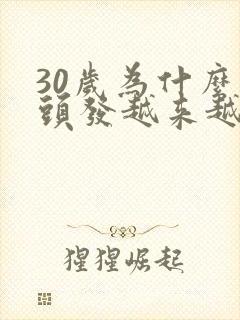 30歲為什麼
頭發越來越
猩猩崛起